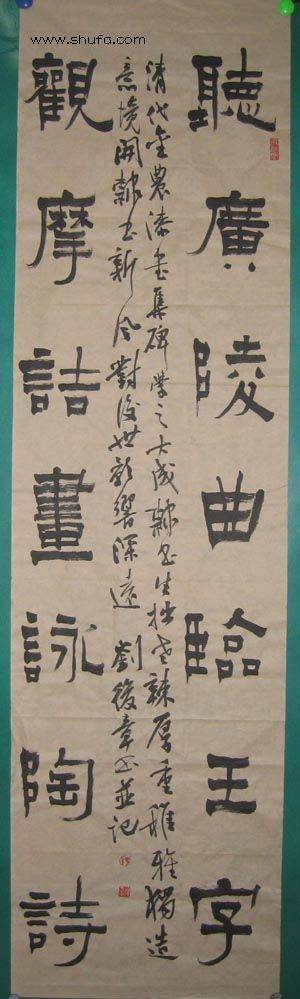 www.shufa.com
聽廣陵曲臨王字
清代金農漆書集碑學之大成隸書生拙老辣厚重稚雅獨造
意境開隸書新風對後世影響深遠 劉後章書並記
觀摩詰畫詠陶詩